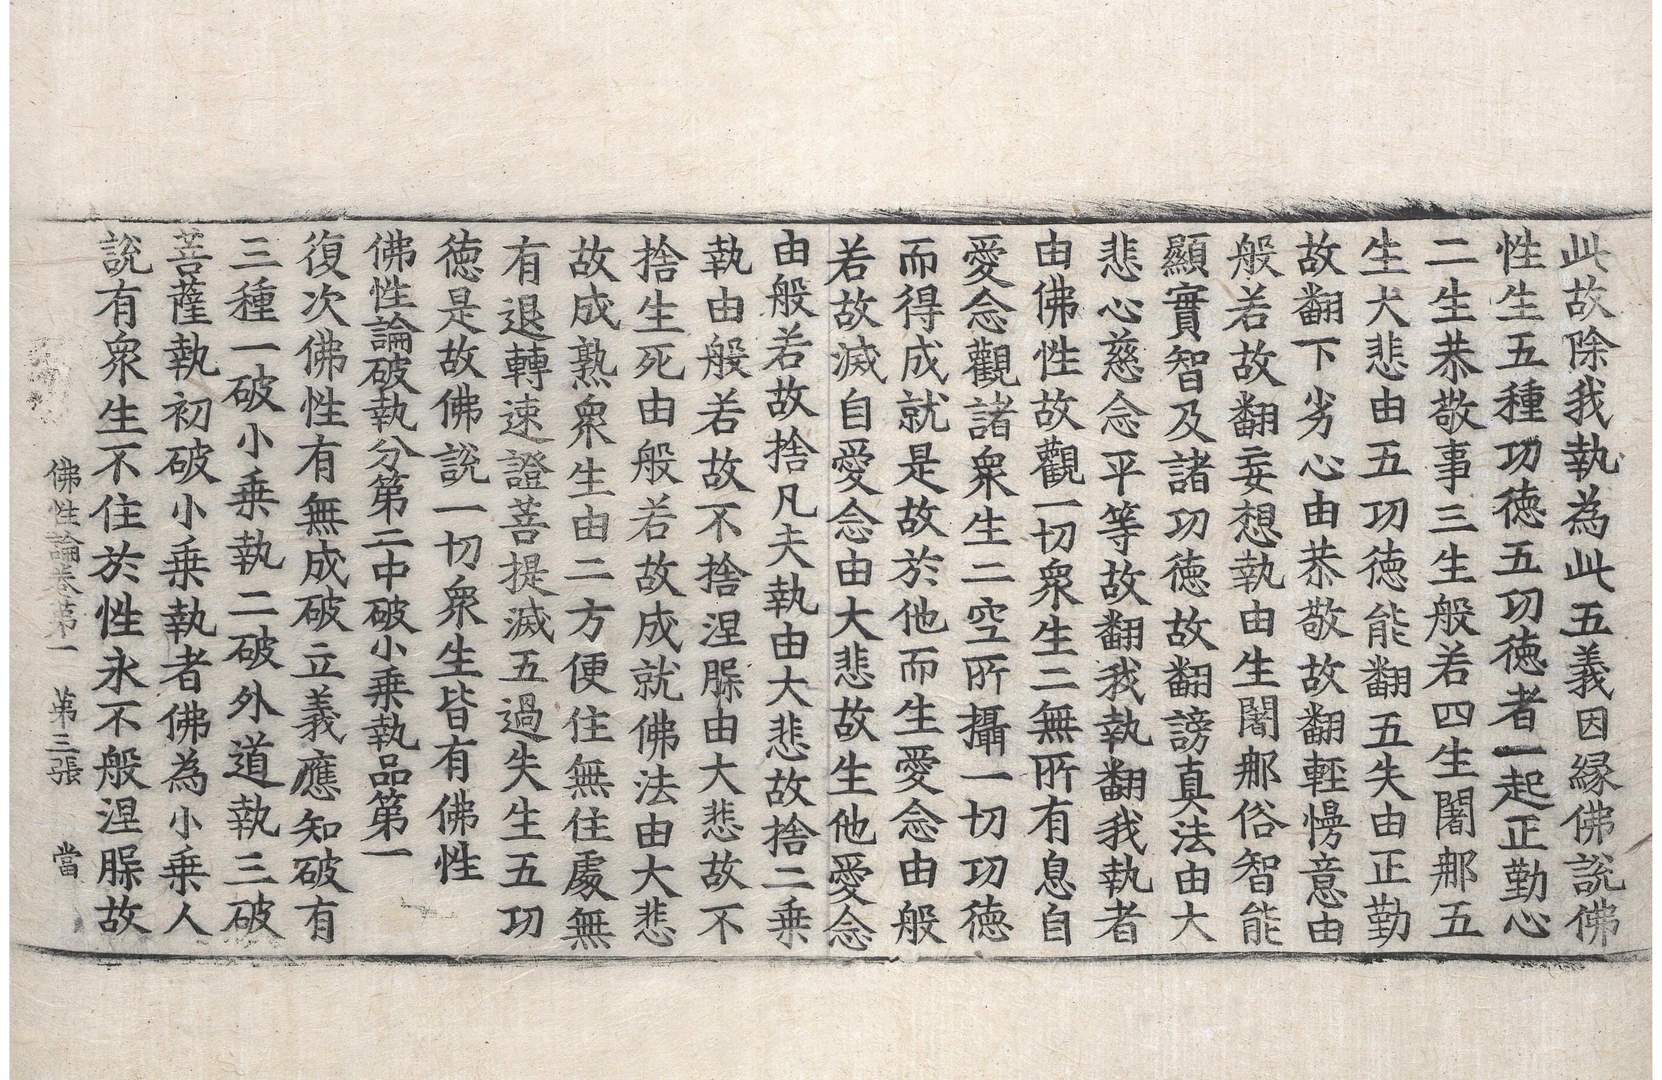 此故除我執為此五義因縁佛說佛
性生五種功徳五功徳者一起正勤心
二生恭敬事三生般若四生闍那五
生大悲由五功徳能翻五失由正勤
故翻下劣心由恭敬故翻輕慢意由
般若故翻妄想執由生闍那俗智能
顯實智及諸功徳故翻謗真法由大
悲心慈念平等故翻我執翻我執者
由佛性故觀一切衆生二無所有息自
愛念觀諸衆生二空所攝一切功徳
而得成就是故於他而生愛念由般
若故滅自愛念由大悲故生他愛念
由般若故捨凡夫執由大悲故捨二乗
執由般若故不捨涅脲由大悲故不
捨生死由般若故成就佛法由大悲
故成熟衆生由二方便住無住處無
有退轉速證菩提滅五過失生五功
徳是故佛說一切衆生皆有佛性
佛性論破執分第二中破小乗執品第一
復次佛性有無成破立義應知破有
三種一破小乗執二破外道執三破
菩薩執初破小乗執者佛為小乗人
說有衆生不住於性永不般涅脲故
佛性論卷第一 第三張 當